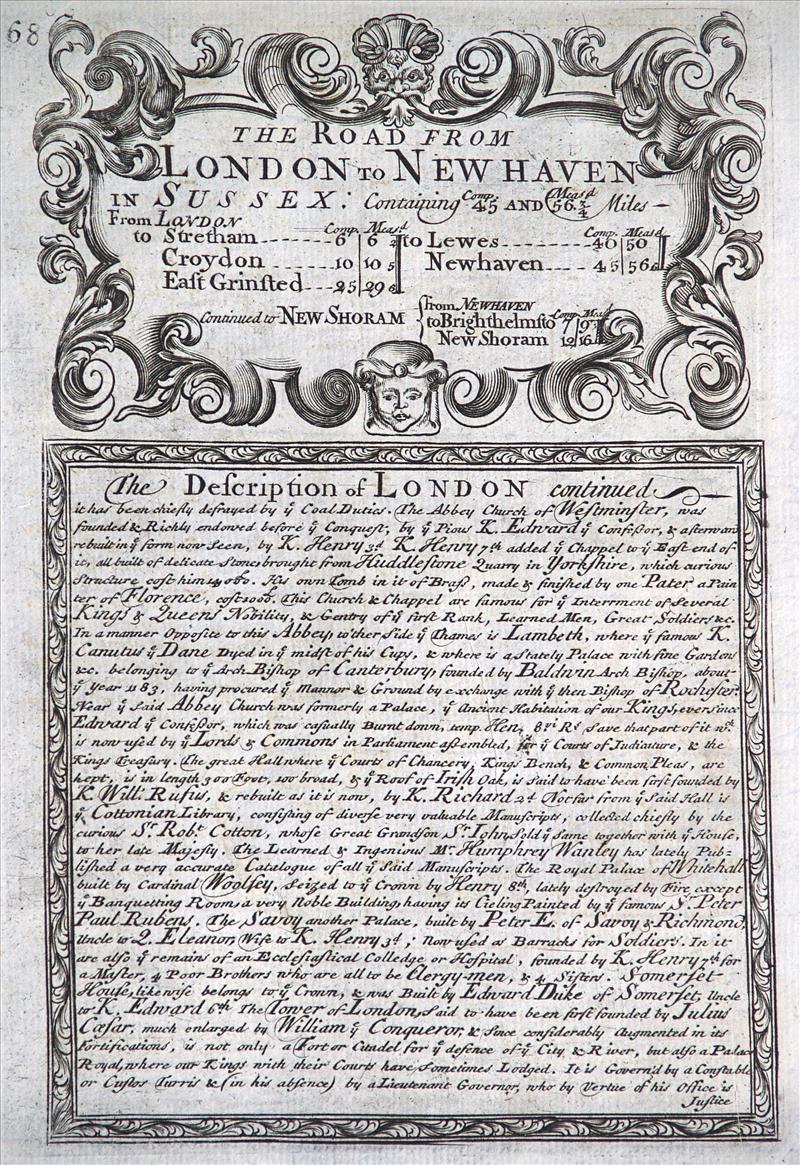 68
THE ROAD FROM
LONDON TO NEW HAVEN
IN SUSSEX: Containing Comp. 45 AND Meas'd 56 3/4 Miles
From LONDON
Comp. Meas'd
to Stretham 6 6
Croydon 10 10 5
East Grinsted 25 29 6
Comp. Meas'd
to Lewes 40 50
Newhaven 45 56 6
Continued to NEW SHORAM
from NEWHAVEN
Comp Meas
to Brighthelmsto 7 9
New Shoram 12 16
The Description of LONDON continued
it has been chiefly defrayed by ẙ Coal Duties. The Abbey Church of Westminster, was
founded & Richly endowed before ẙ Conquest, by ẙ Pious K. Edward ẙ Confeſſor, & afterward
rebuilt in ẙ form now Seen, by K. Henry 3d. K. Henry 7th added ẙ Chappel to ẙ East end of
it, all built of delicate Stones brought from Huddlestone Quarry in Yorkshire, which curious
Structure cost him. His own Tomb in it of Braſs, made & finished by one Pater a Pain
ter of Florence, cost. This Church & Chappel are famous for ẙ Interrment of Several
Kings & Queens Nobility, & Gentry of ẙ first Rank, Learned Men, Great Soldiers &c.
In a manner Opposite to this Abbey, to'ther Side ẙ Thames is Lambeth, where ẙ famous K.
Canutus ẙ Dane Dyed in ẙ midst of his Cups, & where is a Stately Palace with fine Gardens
&c. belonging to ẙ Arch Bishop of Canterbury, founded by Baldwin Arch Bishop, about
ẙ Year 1183, having procured ẙ Mannor & Ground by exchange with ẙ then Bishop of Rochester.
Near ẙ Said Abbey Church was formerly a Palace, ẙ Ancient Habitation of our Kings, ever since
Edward ẙ Confeſſor, which was casually Burnt down, temp. Hen. 8vi Rs Save that part of it wch.
is now used by ẙ Lords & Commons in Parliament aſsembled, for ẙ Courts of Judicature, & the
Kings Treasury. The great Hall where ẙ Courts of Chancery, Kings Bench, & Common Pleas, are
kept, is in length 300 Foot, 100 broad, & ẙ Roof of Irish Oak, is said to have been first founded by
K. Will: Rufus, & rebuilt as it is now, by K. Richard 2d. Not far from ẙ Said Hall is
ẙ Cottonian Library, consisting of diverse very valuable Manuscripts, collected chiefly by the
curious Sr. Robt. Cotton, whose Great Grandson Sr. John, Sold ẙ Same together with ẙ House,
to her late Majesty. The Learned & Ingenious Mr. Humphrey Wanley has lately Pub-
lished a very accurate Catalogue of all ẙ Said Manuscripts. The Royal Palace of Whitehall
built by Cardinal Woolsey, Seized to ẙ Crown by Henry 8th, lately destroyed by Fire except
ẙ Banquetting Room, a very Noble Building, having its Cieling Painted by ẙ famous Sr. Peter
Paul Rubens. The Savoy another Palace, built by Peter E. of Savoy & Richmond,
Uncle to Q. Eleanor, Wife to K. Henry 3d; Now used as Barracks for Soldiers. In it
are also ẙ remains of an Ecclesiastical Colledge or Hospital, founded by K. Henry 7th for
a Master, 4 Poor Brothers who are all to be Clergy-men, & 4 Sisters. Somerset
House, likewise belongs to ẙ Crown, & was Built by Edward Duke of Somerset, Uncle
to K. Edward 6th The Tower of London, Said to have been first founded by Julius
Cæsar, much enlarged by William ẙ Conqueror, & Since considerably Augmented in its
Fortifications, is not only a Fort or Citadel for ẙ defence of ẙ City & River, but also a Palace
Royal, where our Kings with their Courts have Sometimes Lodged. It is Govern'd by a Constable
or Custos Turris & (in his absence) by a Lieutenant Governor, who by Vertue of his Office is
Justice